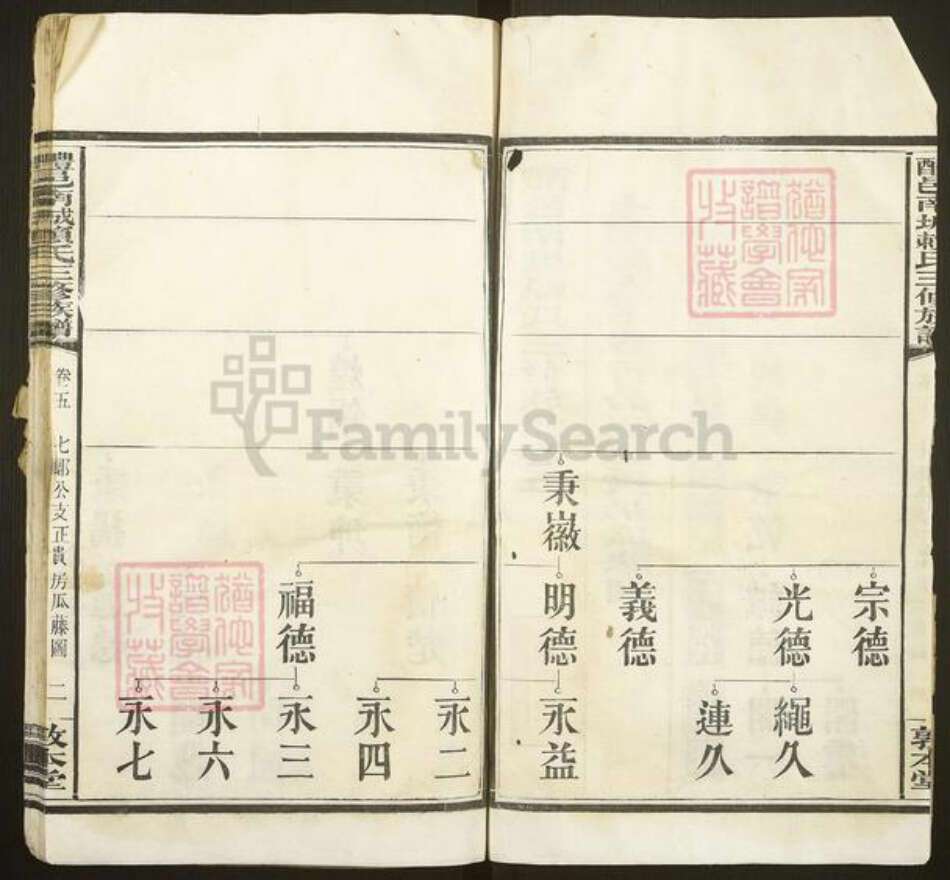 醴邑南城賴氏三修族譜
敦本堂
宗德
光德
義德
秉徽
明德
繩久
連久
永益
福德
永二
永四
永三
永六
永七
醴邑南城賴氏三修族譜
卷五
七郎公支正貴房瓜藤圖
二
敦本堂
譜學會
收藏
譜學會
收藏
FamilySearch